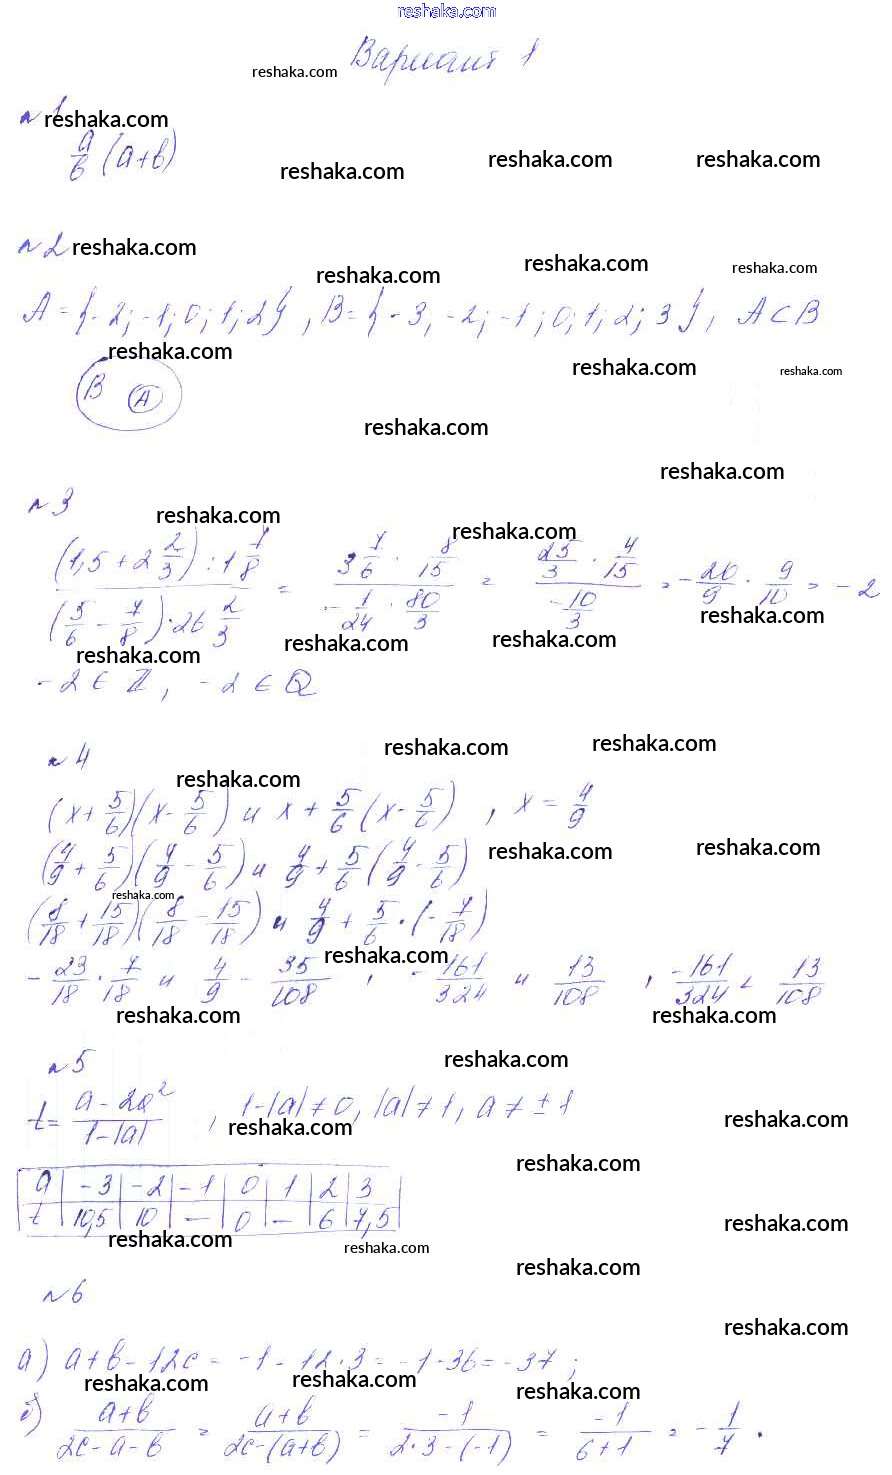 reshaka.com
Вариант 1
reshaka.com
№1 reshaka.com
a/b (a+b)
reshaka.com reshaka.com reshaka.com
№2 reshaka.com
reshaka.com reshaka.com reshaka.com
A = {-2; -1; 0; 1; 2}, B = {-3, -2; -1; 0; 1; 2; 3}, A ⊂ B
reshaka.com reshaka.com reshaka.com
B A
reshaka.com
reshaka.com
№3
reshaka.com reshaka.com
((1,5 + 2 2/3) : 1 7/8) / ((5/6 - 7/8) · 26 2/3) = (3 7/6 · 8/15) / (-1/24 · 80/3) = (25/3 · 4/15) / (-10/3) = -20/9 · 9/10 = -2
reshaka.com reshaka.com reshaka.com reshaka.com
-2 ∈ Z, -2 ∈ Q
№4
reshaka.com reshaka.com reshaka.com
(x + 5/6)(x - 5/6) и x + 5/6 (x - 5/6), x = 4/9
(4/9 + 5/6)(4/9 - 5/6) и 4/9 + 5/6 (4/9 - 5/6)
reshaka.com reshaka.com
reshaka.com
(8/18 + 15/18)(8/18 - 15/18) и 4/9 + 5/6 · (-7/18)
reshaka.com
-23/18 · 7/18 и 4/9 - 35/108, -161/324 и 13/108, -161/324 < 13/108
reshaka.com reshaka.com
№5
reshaka.com
t = (a - 2a²) / (1 - |a|), 1 - |a| ≠ 0, |a| ≠ 1, a ≠ ±1
reshaka.com reshaka.com
reshaka.com
a | -3 | -2 | -1 | 0 | 1 | 2 | 3
t | 10,5 | 10 | — | 0 | — | 6 | 7,5
reshaka.com reshaka.com reshaka.com
reshaka.com
№6
reshaka.com
а) a + b - 12c = -1 - 12·3 = -1 - 36 = -37;
reshaka.com reshaka.com reshaka.com
б) (a+b) / (2c - a - b) = (a+b) / (2c - (a+b)) = -1 / (2·3 - (-1)) = -1 / (6+1) = -1/7.